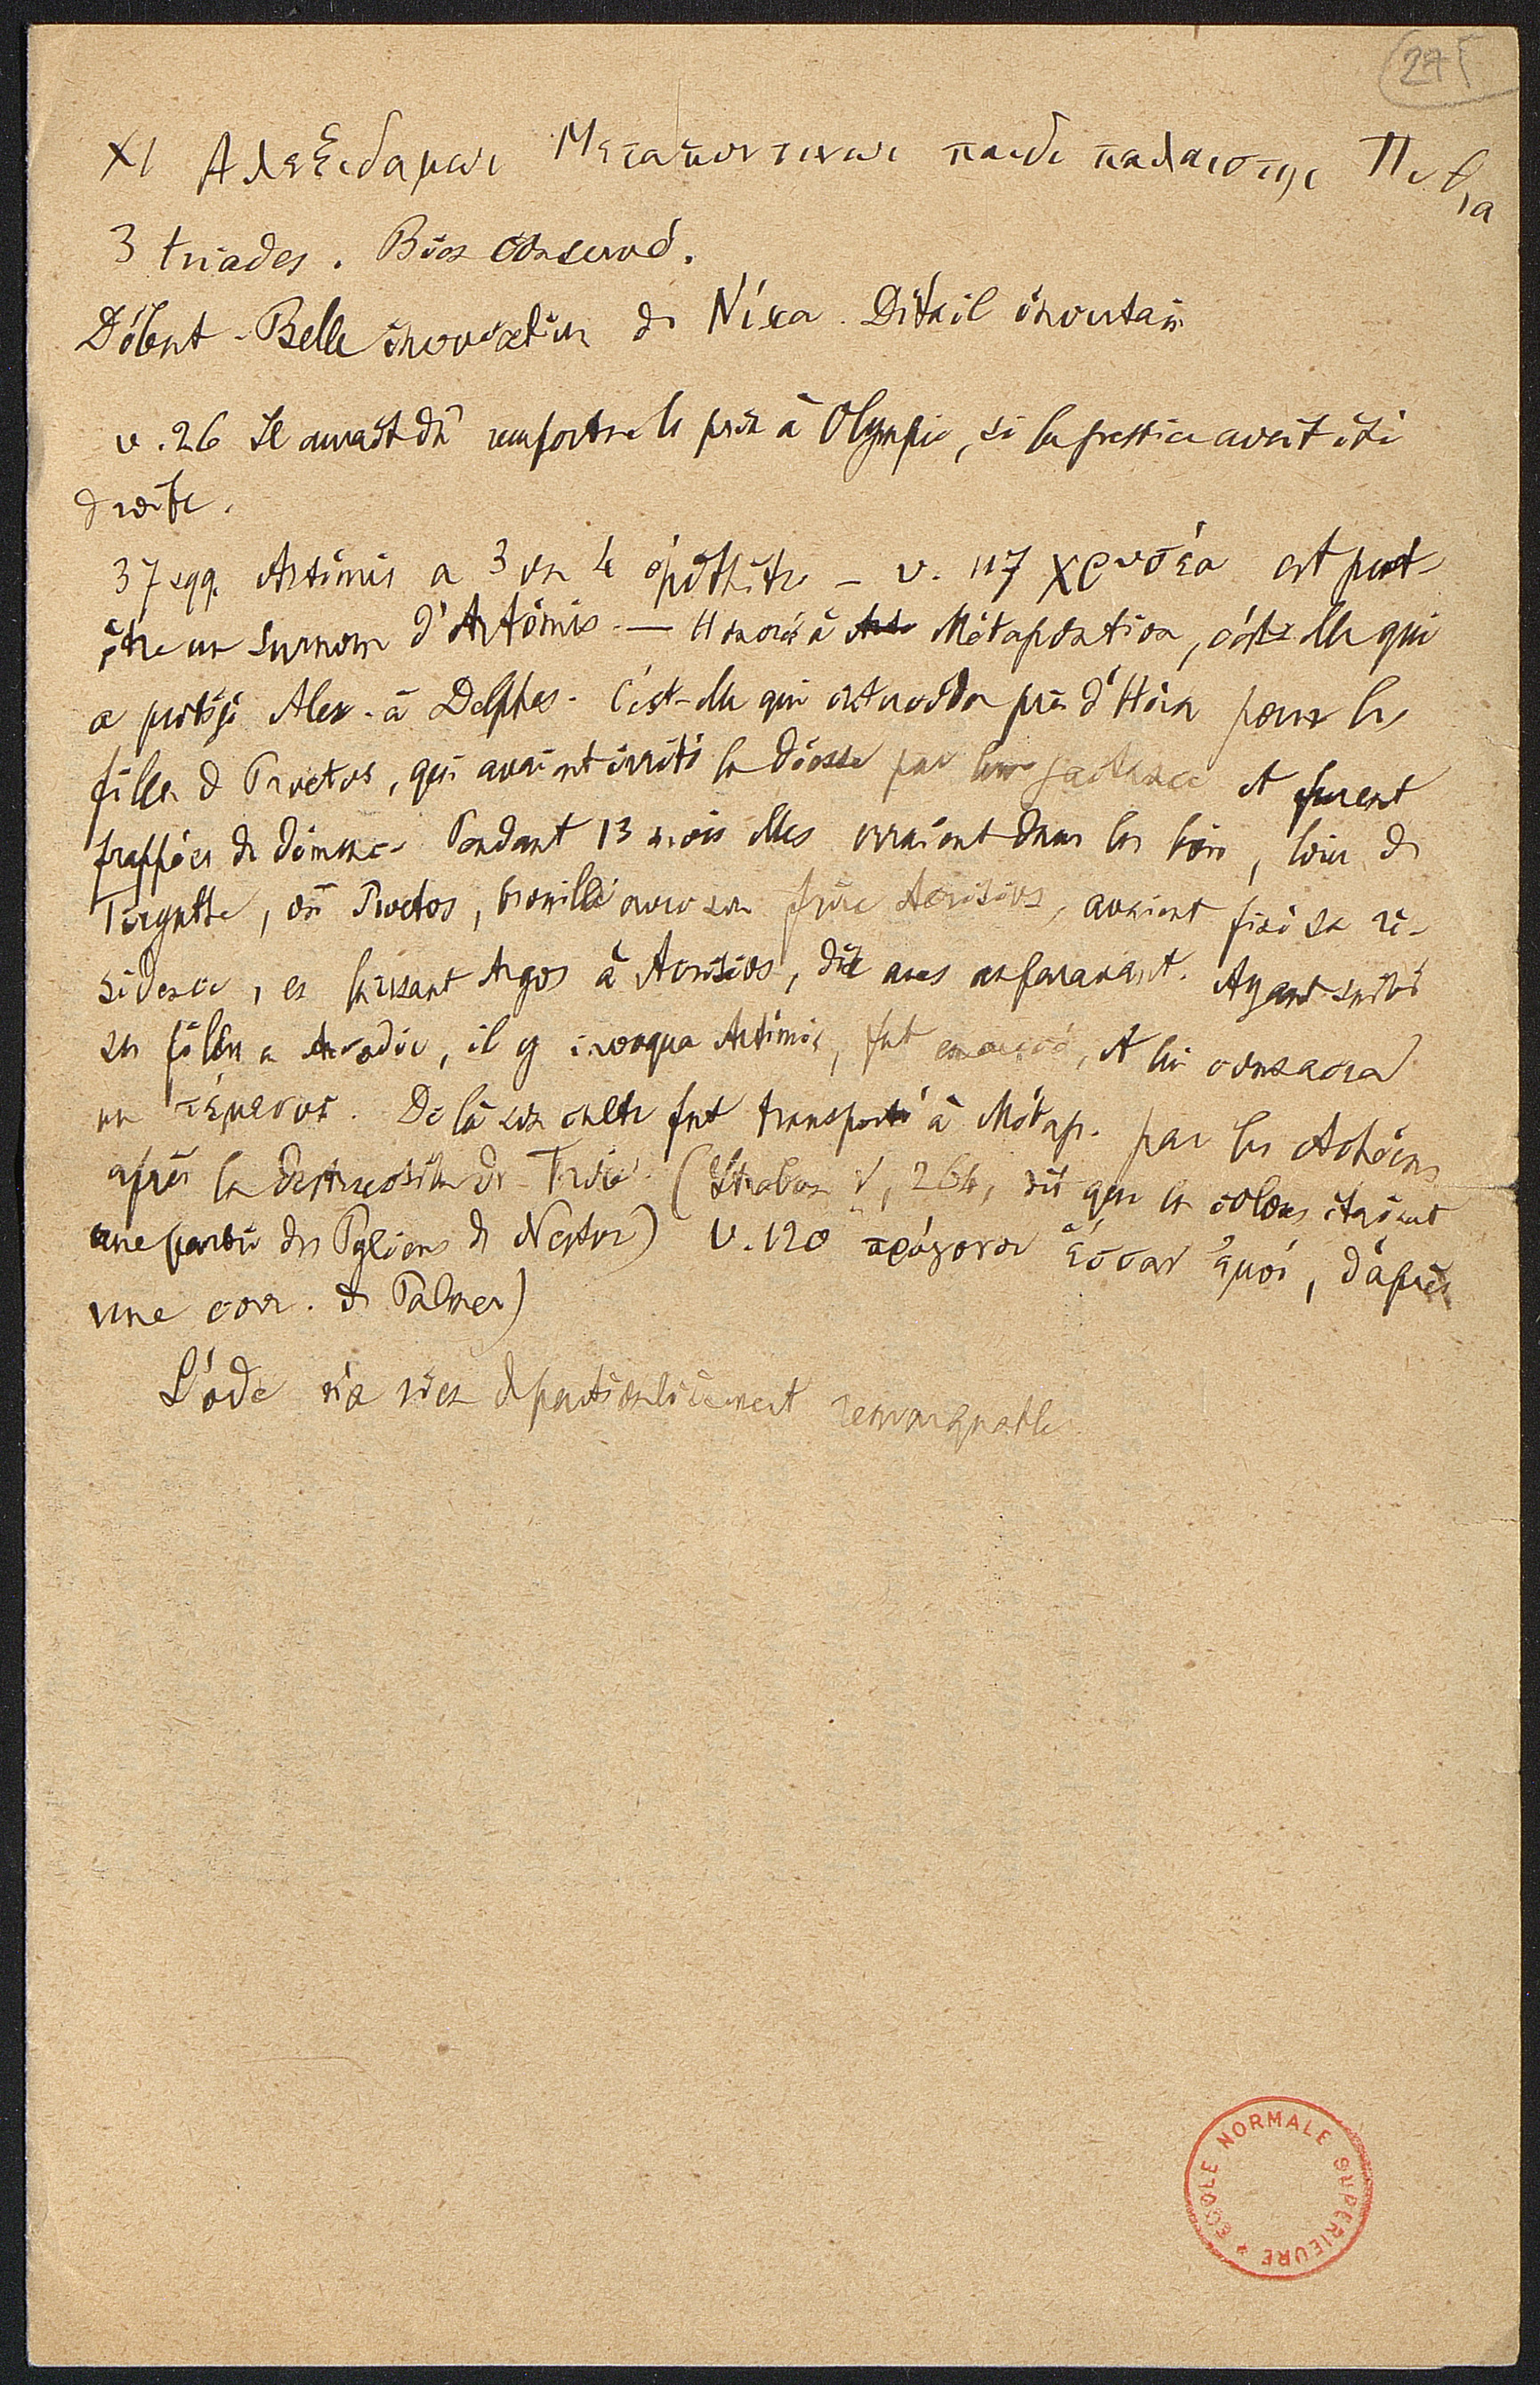 275
XI Αλεξιδαμωι Μεταποντινωι παιδι παλαιστηι Πυθια
3 triades. Bien conservé.
Début. Belle invocation de Νίκα. Détail
v. 26 Il aurait dû remporter le prix à Olympie, si la justice avait été
droite.
37 sqq. Artémis a 3 ou 4 épithètes – v. 117 χρυσέα est peut-
être un surnom d'Artémis. — Honorée à Métapontion, c'est elle qui
a protégé Alex. à Delphes. C'est elle qui intercéda près d'Héra pour les
filles de Proetos, qui avaient irrité la déesse par leur jactance et furent
frappées de démence. Pendant 13 mois elles erraient dans les bois, loin de
Tirynthe, où Proetos, brouillé avec son frère Acrisios, avaient fixé sa ré-
sidence, en laissant Argos à Acrisios, dix ans auparavant. Ayant suivi
ses filles en Arcadie, il y invoqua Artémis, fut exaucé, et lui consacra
un τέμενος. De là son culte fut transporté à Métap. par les Achéens
après la destruction de Troie. (Strabon V, 264, dit que les colons étaient
une partie des Pyliens de Nestor) V. 120 πρόγονοι ἕσσαν ἐμοί, d'après
une corr. de Palmer)
L'ode n'a rien de particulièrement remarquable
ECOLE NORMALE SUPERIEURE *